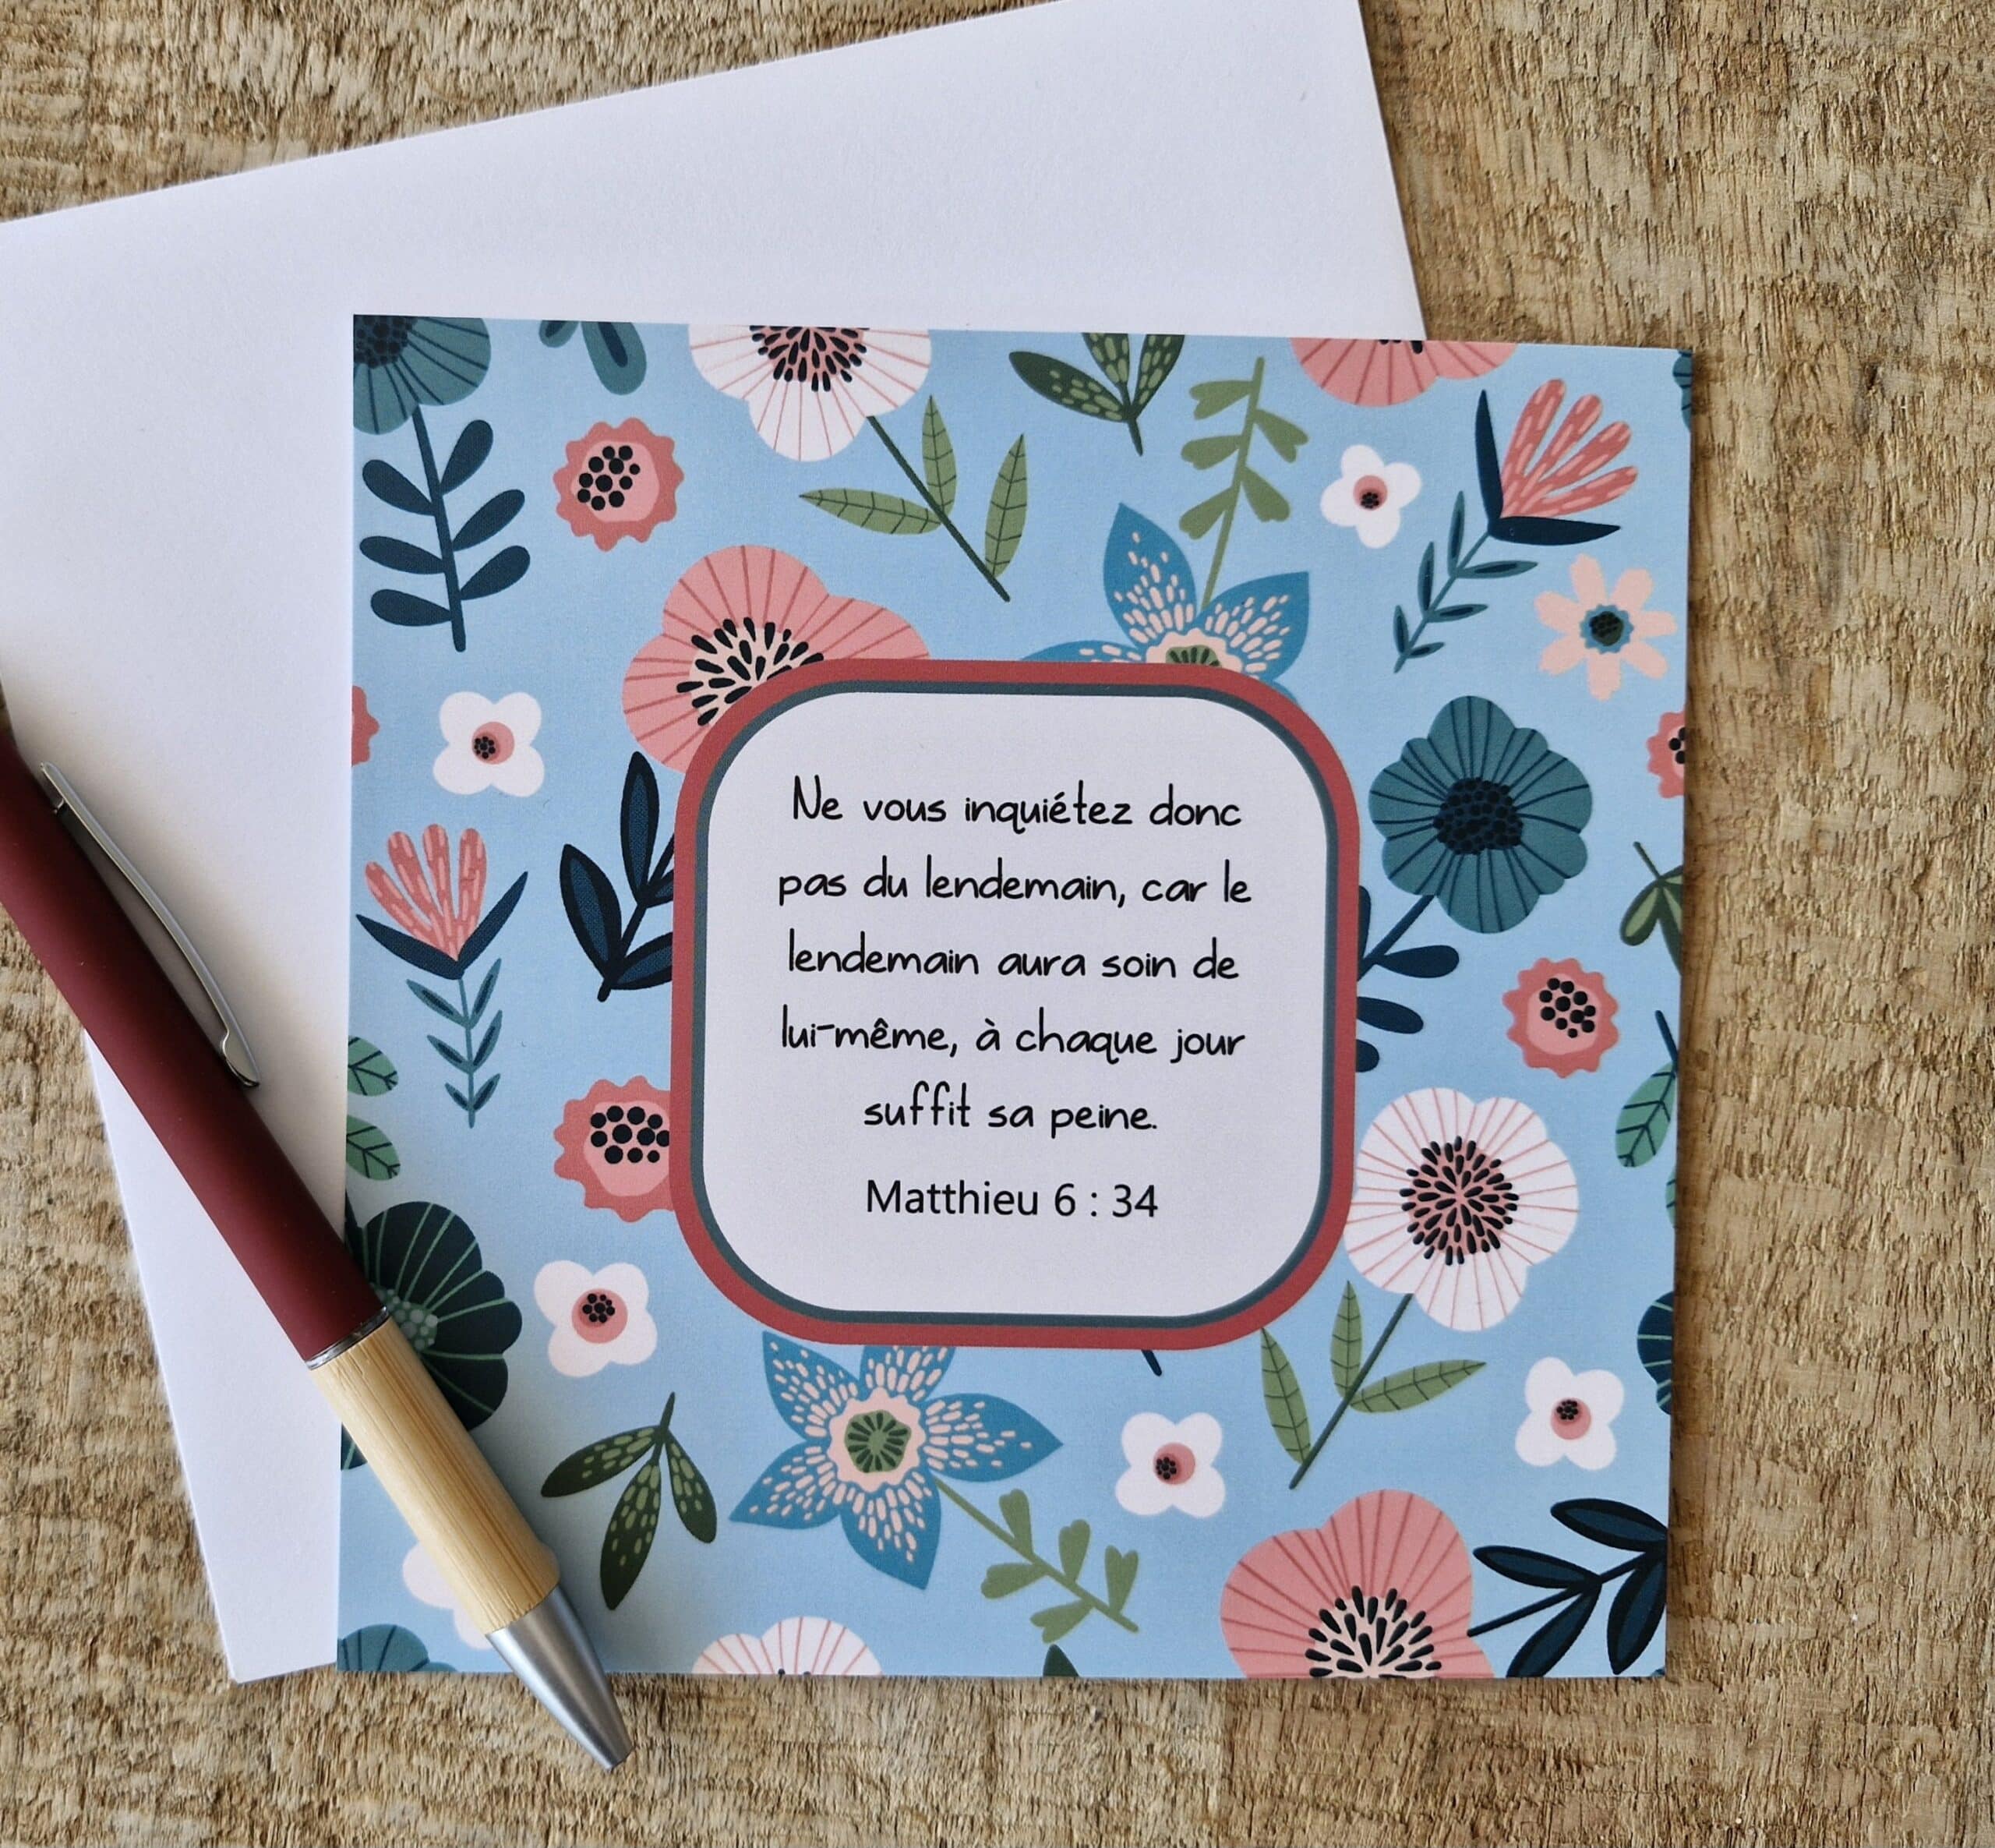 Ne vous inquiétez donc
pas du lendemain, car le
lendemain aura soin de
lui-même, à chaque jour
suffit sa peine.
Matthieu 6 : 34